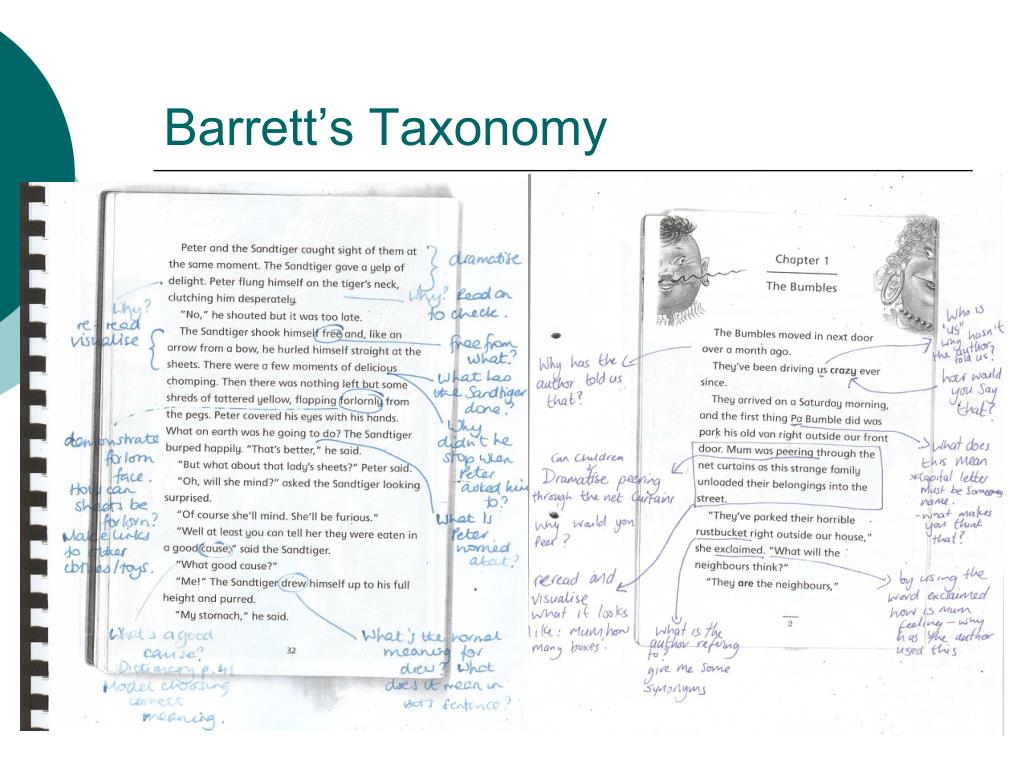 Barrett's Taxonomy
Peter and the Sandtiger caught sight of them at
the same moment. The Sandtiger gave a yelp of
delight. Peter flung himself on the tiger's neck,
clutching him desperately.
"No," he shouted but it was too late.
The Sandtiger shook himself free and, like an
arrow from a bow, he hurled himself straight at the
sheets. There were a few moments of delicious
chomping. Then there was nothing left but some
shreds of tattered yellow, flapping forlornly from
the pegs. Peter covered his eyes with his hands.
What on earth was he going to do? The Sandtiger
burped happily. "That's better," he said.
"But what about that lady's sheets?" Peter said.
"Oh, will she mind?" asked the Sandtiger looking
surprised.
"Of course she'll mind. She'll be furious."
"Well at least you can tell her they were eaten in
a good cause," said the Sandtiger.
"What good cause?"
"Me!" The Sandtiger drew himself up to his full
height and purred.
"My stomach," he said.
32
Why?
re-read
visualise
demonstrate
forlorn
face.
How can
sheets be
forlorn?
Make links
to other
toys.
What's a good
cause?
Dictionary p.41
Model choosing
correct
meaning.
dramatise
Why? Read on
to check.
free from
what?
What has
the Sandtiger
done?
Why
didn't he
stop when
Peter
asked him
to?
What is
Peter
worried
about?
What's the normal
meaning for
drew? What
does it mean in
sentence?
Chapter 1
The Bumbles
The Bumbles moved in next door
over a month ago.
They've been driving us crazy ever
since.
They arrived on a Saturday morning,
and the first thing Pa Bumble did was
park his old van right outside our front
door. Mum was peering through the
net curtains as this strange family
unloaded their belongings into the
street.
"They've parked their horrible
rustbucket right outside our house,"
she exclaimed. "What will the
neighbours think?"
"They are the neighbours,"
2
Why has the
author told us
that?
Can children
Dramatise peering
through the net curtains
Why would you
Peer?
reread and
visualise
what it looks
like: mum, how
many boxes.
What is the
author refering
to?
give me some
synonyms
Who is
'us'
why hasn't
the author
told us?
how would
you say
that?
what does
this mean
*capital letter
must be someones
name.
-what makes
you think
that?
by using the
word exclaimed
how is mum
feeling - why
has the author
used this